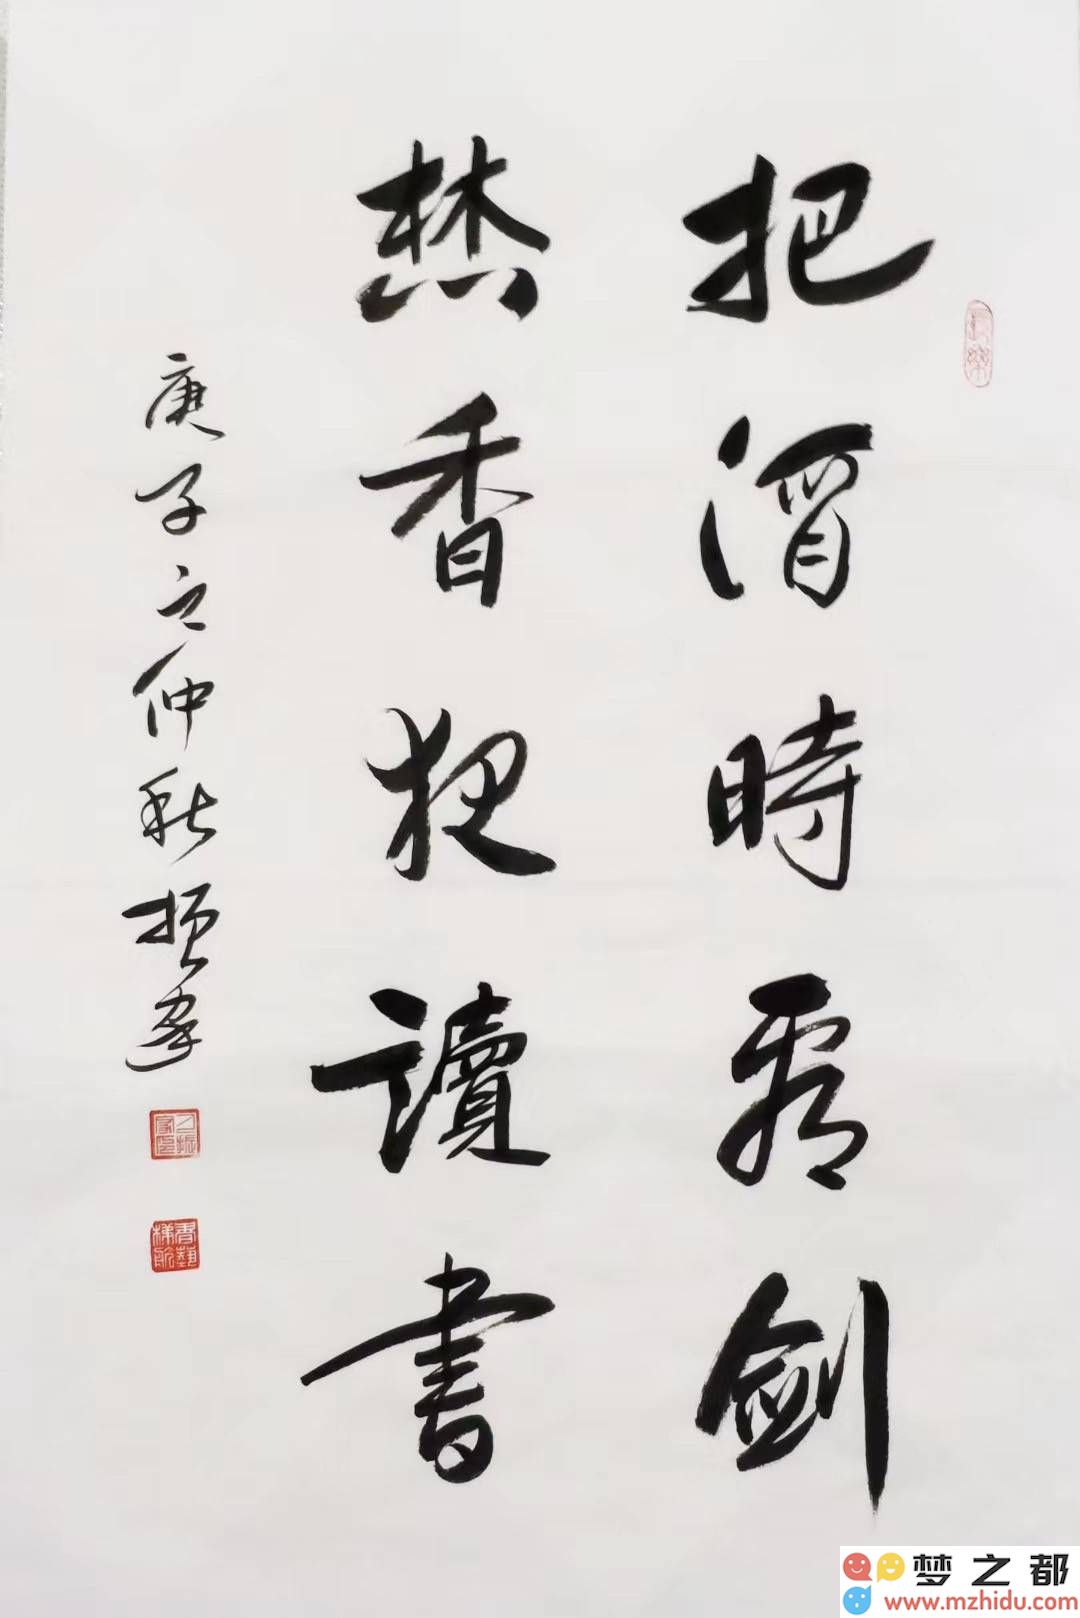 把酒時看劍
焚香夜讀書
庚子之仲秋振家
長樂
梦之都
www.mzhidu.com